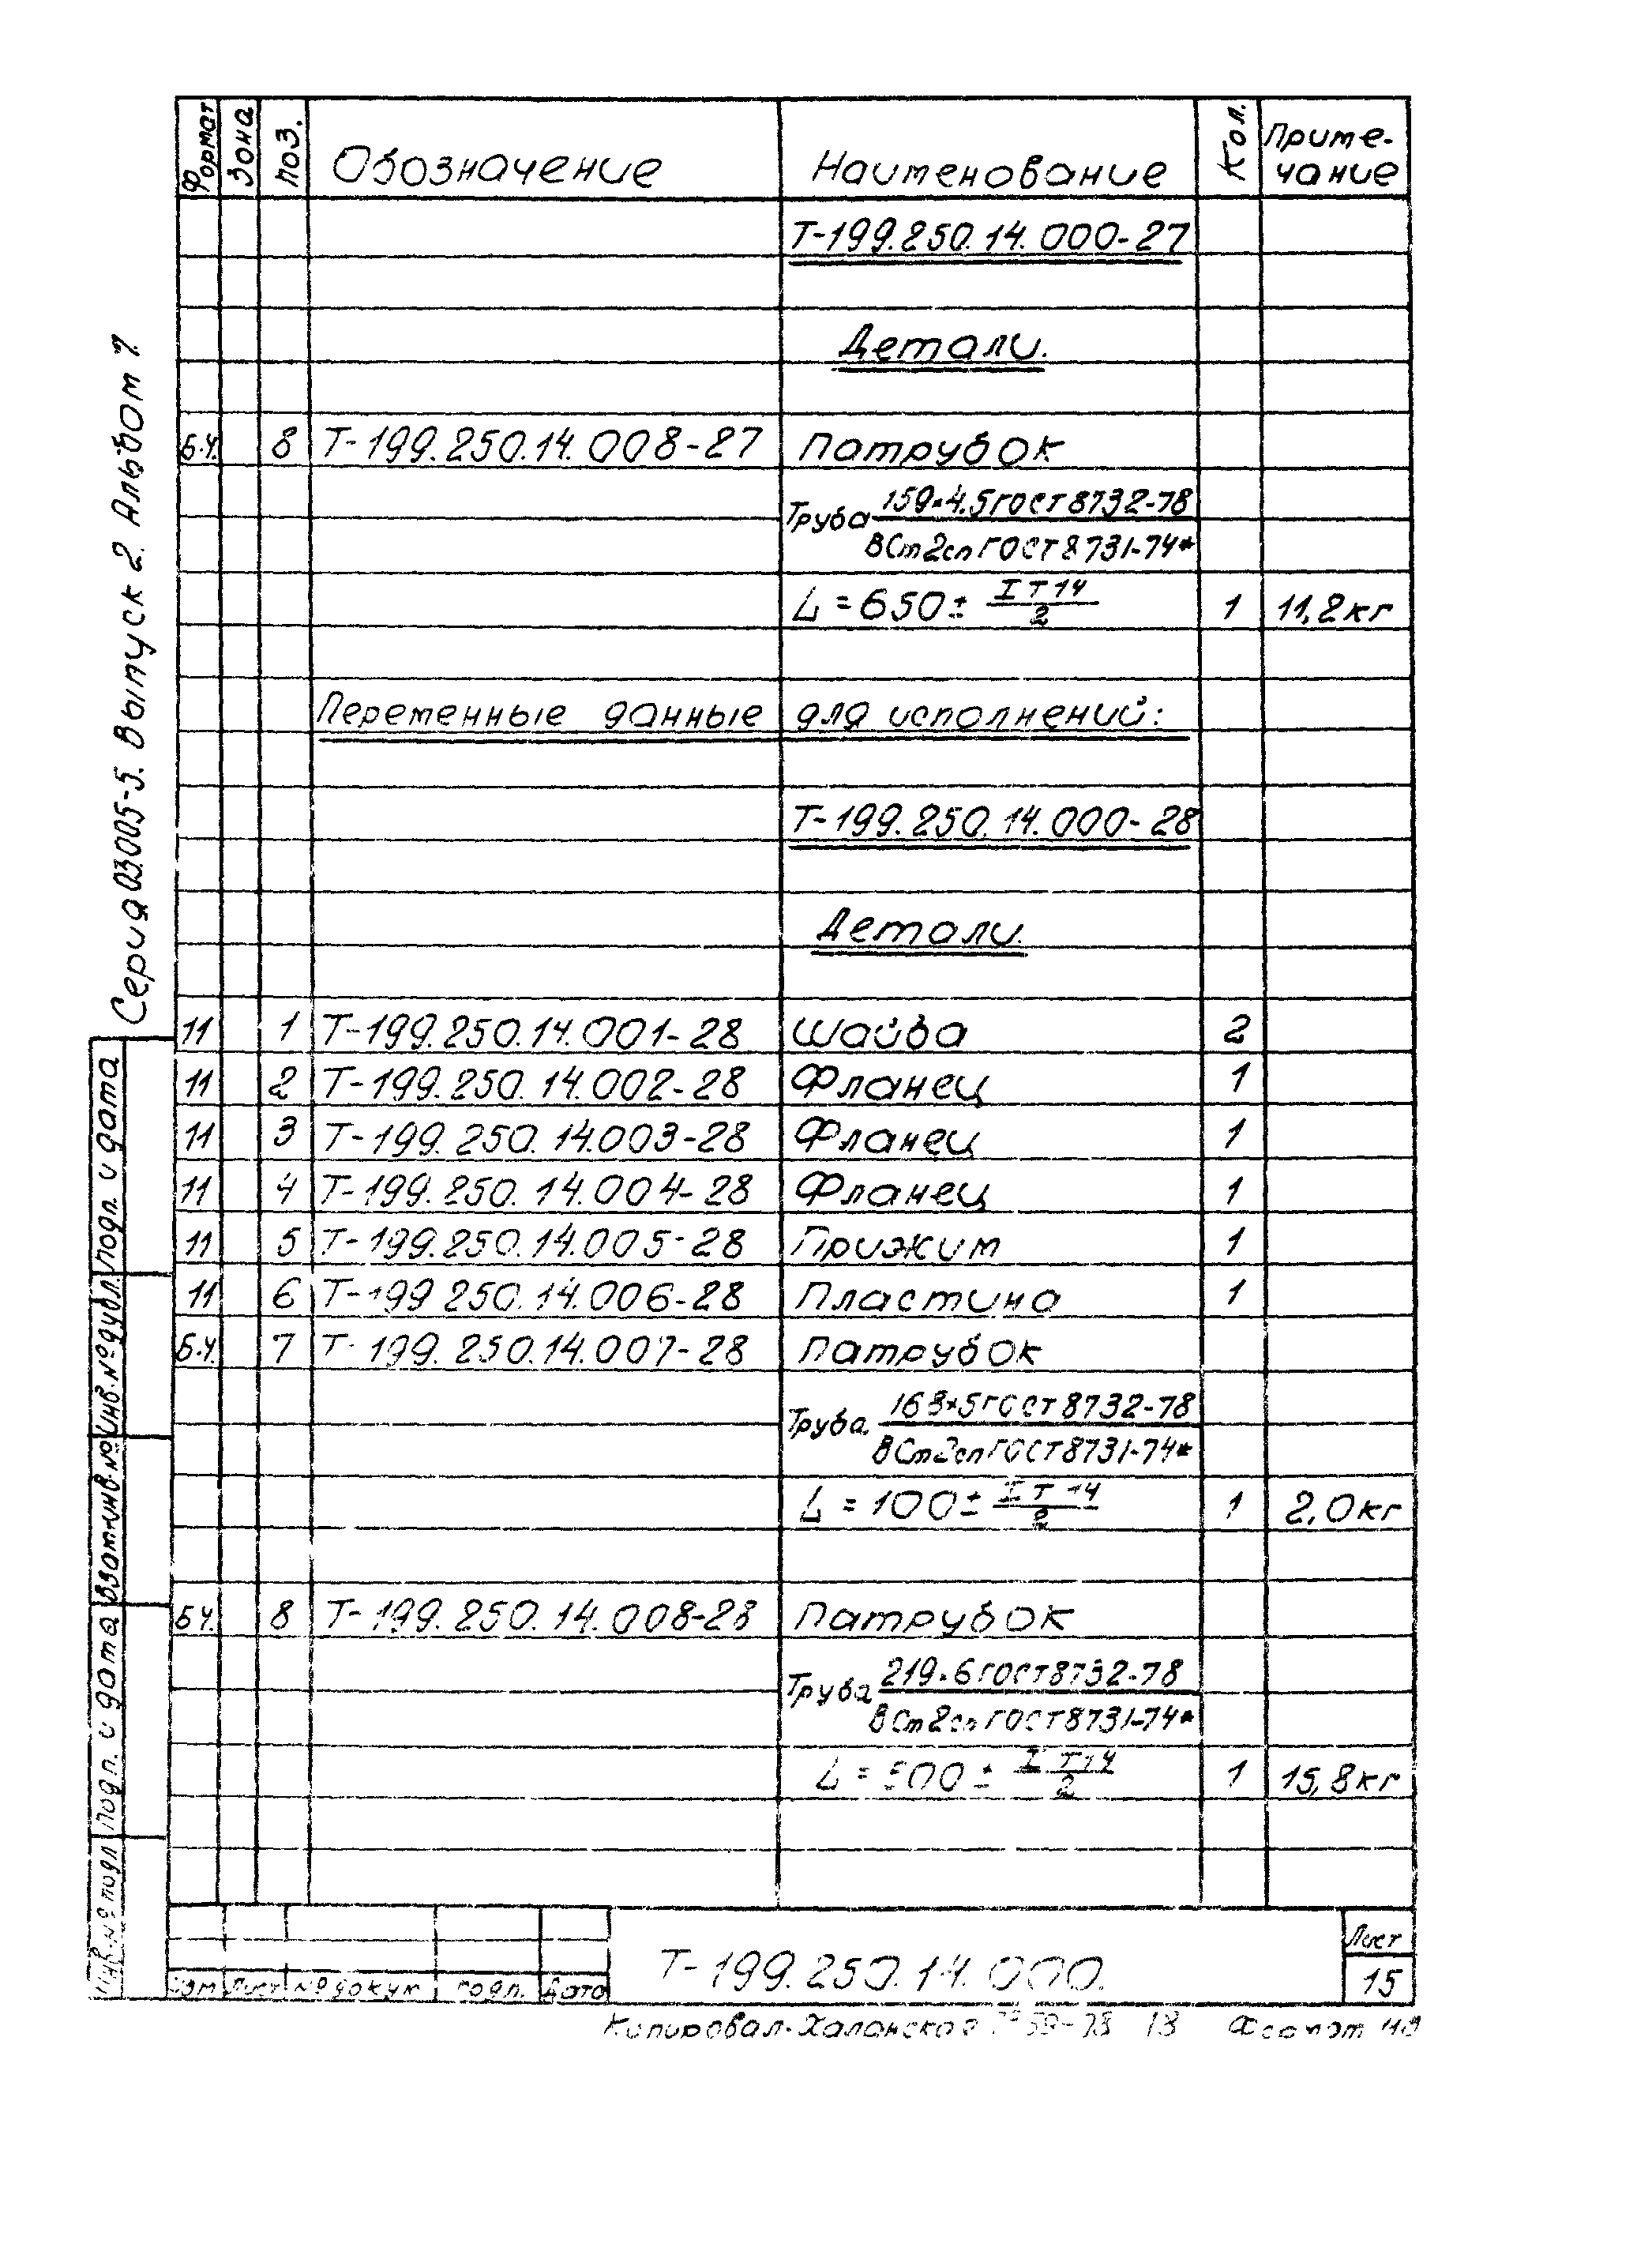 Формат Зона Поз. Обозначение Наименование Кол. Приме-
чание
Т-199.250.14.000-27
Детали.
Б.Ч. 8 Т-199.250.14.008-27 Патрубок
Труба 159×4.5 ГОСТ 8732-78
ВСт2сп ГОСТ 8731-74*
L=650± IT14
2
1 11,2кг
Переменные данные для исполнений:
Т-199.250.14.000-28
Детали.
11 1 Т-199.250.14.001-28 Шайба 2
11 2 Т-199.250.14.002-28 Фланец 1
11 3 Т-199.250.14.003-28 Фланец 1
11 4 Т-199.250.14.004-28 Фланец 1
11 5 Т-199.250.14.005-28 Прижим 1
11 6 Т-199.250.14.006-28 Пластина 1
Б.Ч. 7 Т-199.250.14.007-28 Патрубок
Труба 168×5 ГОСТ 8732-78
ВСт2сп ГОСТ 8731-74*
L=100± IT14
2
1 2,0кг
Б.Ч. 8 Т-199.250.14.008-28 Патрубок
Труба 219×6 ГОСТ 8732-78
ВСт2сп ГОСТ 8731-74*
L=500± IT14
2
1 15,8кг
Серия 03.005-5. Выпуск 2. Альбом 7.
Подп. и дата
Инв. № дубл.
Взам. инв. №
Подп. и дата
Инв. № подл.
Изм Лист № докум Подп. Дата
Т-199.250.14.000.
Лист
15
Копировал-Халанская Формат